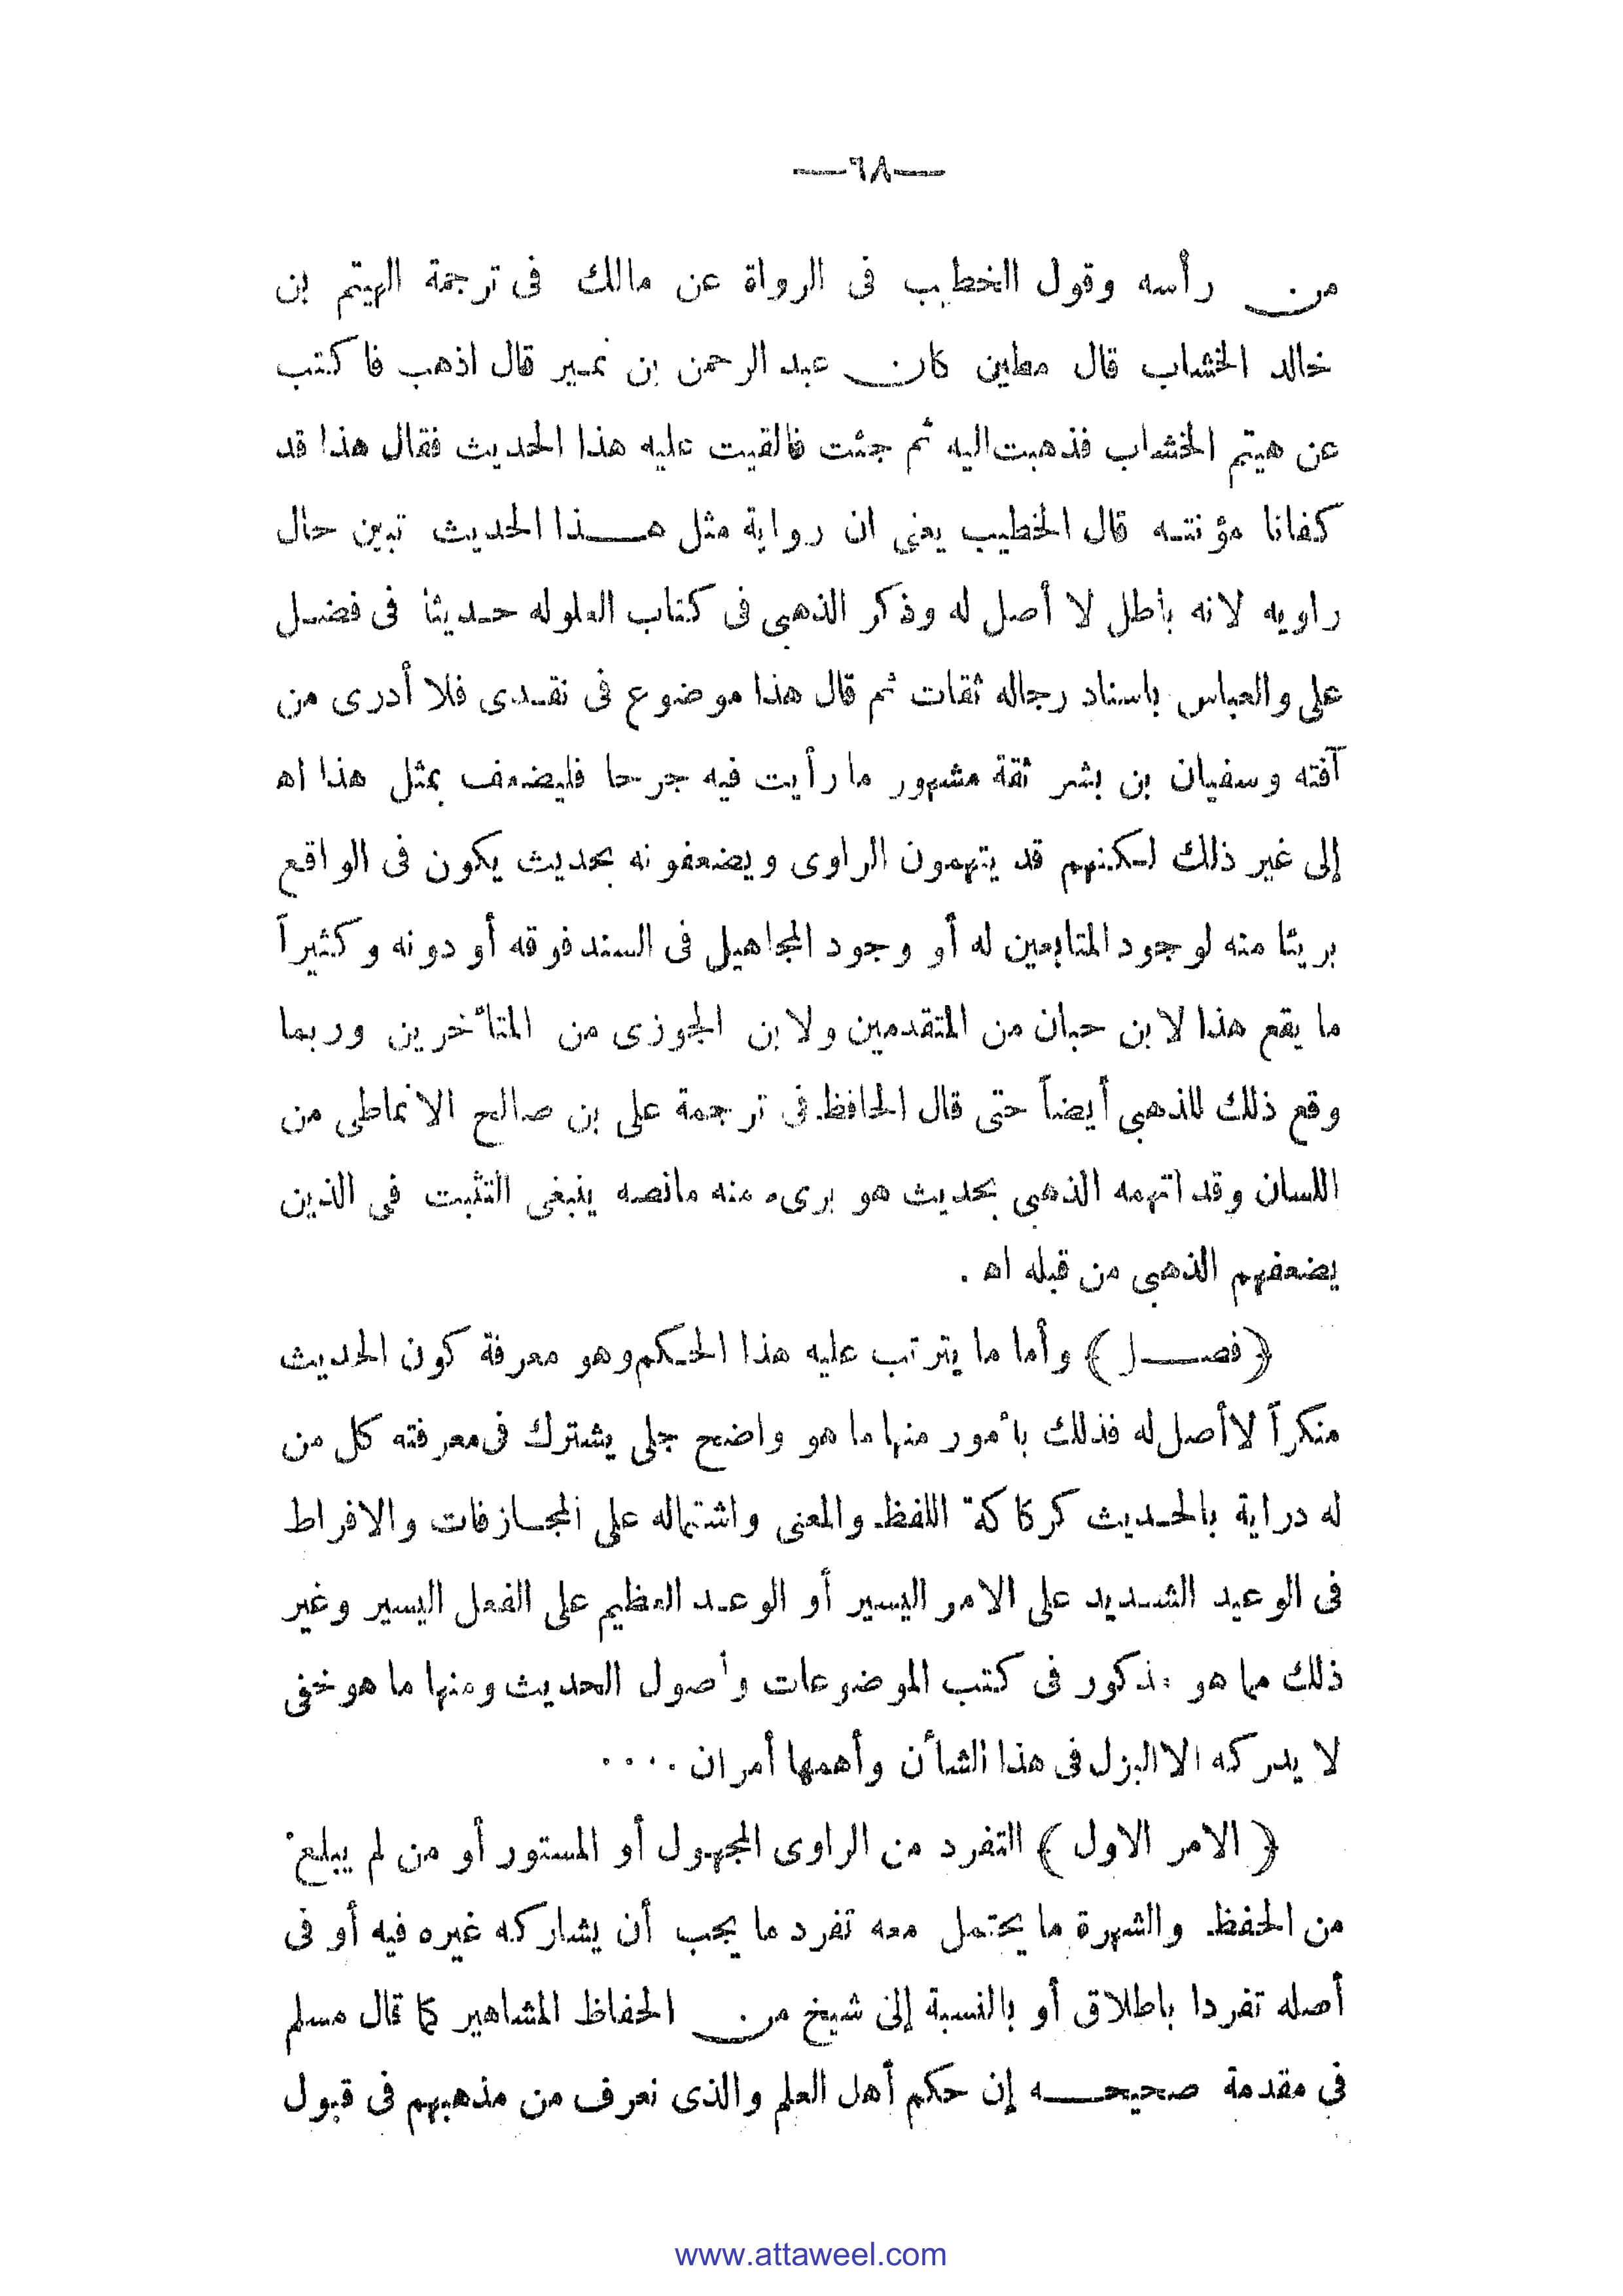 —٦٨—
من رأسه وقول الخطيب فى الرواة عن مالك فى ترجمة الهيثم بن
خالد الخشاب قال مطين كان عبد الرحمن بن نمير قال اذهب فاكتب
عن هيثم الخشاب فذهبت اليه ثم جئت فالقيت عليه هذا الحديث فقال هذا قد
كفانا مؤنته قال الخطيب يعنى ان رواية مثل هذا الحديث تبين حال
راويه لانه باطل لا أصل له وذكر الذهبى فى كتاب العلو له حديثا فى فضل
على والعباس باسناد رجاله ثقات ثم قال هذا موضوع فى نقدى فلا أدرى من
آفته وسفيان بن بشر ثقة مشهور ما رأيت فيه جرحا فليضعف بمثل هذا اه
إلى غير ذلك لكنهم قد يتهمون الراوى ويضعفونه بحديث يكون فى الواقع
بريئا منه لوجود المتابعين له أو وجود المجاهيل فى السند فوقه أو دونه وكثيراً
ما يقع هذا لابن حبان من المتقدمين ولابن الجوزى من المتأخرين وربما
وقع ذلك للذهبى أيضاً حتى قال الحافظ فى ترجمة على بن صالح الانماطى من
اللسان وقد اتهمه الذهبى بحديث هو برىء منه مانصه ينبغى التثبت فى الذين
يضعفهم الذهبى من قبله اه .
( فصل ) وأما ما يترتب عليه هذا الحكم وهو معرفة كون الحديث
منكراً لاأصل له فذلك بأمور منها ما هو واضح جلى يشترك فى معرفته كل من
له دراية بالحديث كركاكة اللفظ والمعنى واشتماله على المجازفات والافراط
فى الوعيد الشديد على الامر اليسير أو الوعد العظيم على الفعل اليسير وغير
ذلك مما هو مذكور فى كتب الموضوعات وأصول الحديث ومنها ما هو خفى
لا يدركه الا البزل فى هذا الشأن وأهمها أمران . . . .
( الامر الاول ) التفرد من الراوى المجهول أو المستور أو من لم يبلغ
من الحفظ والشهرة ما يحتمل معه تفرد ما يجب أن يشاركه غيره فيه أو فى
أصله تفردا باطلاق أو بالنسبة إلى شيخ من الحفاظ المشاهير كما قال مسلم
فى مقدمة صحيحه إن حكم أهل العلم والذى نعرف من مذهبهم فى قبول
www.attaweel.com